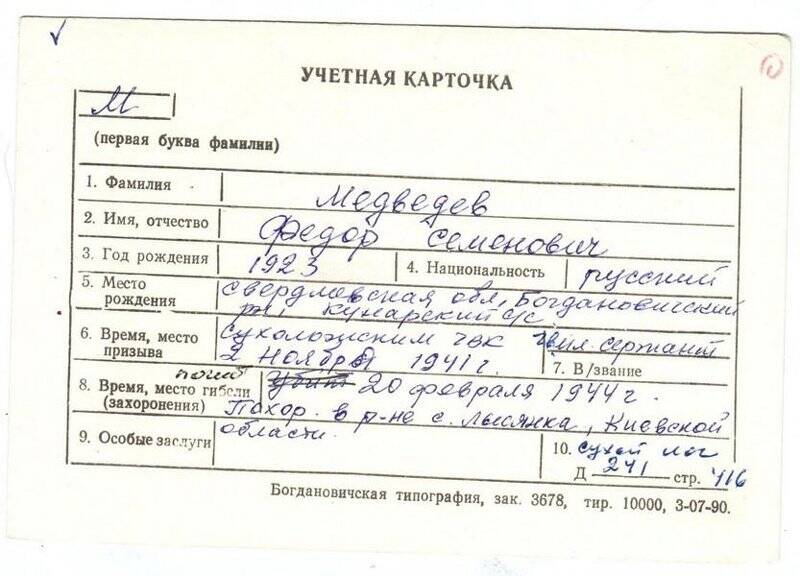 УЧЕТНАЯ КАРТОЧКА
М
(первая буква фамилии)
1. Фамилия Медведев
2. Имя, отчество Федор Семенович
3. Год рождения 1923 4. Национальность русский
5. Место рождения Свердловская обл, Богдановичский
р-н, Кунарский с/с
6. Время, место призыва Сухоложским гвк
2 ноября 1941 г.
мл. сержант
7. В/звание
погиб
8. Время, место гибели (захоронения) Убит 20 февраля 1944 г.
Похор. в р-не с. Лысянка, Киевской
области.
9. Особые заслуги
10. Сухой лог
Д 241 стр. 416
Богдановичская типография, зак. 3678, тир. 10000, 3-07-90.